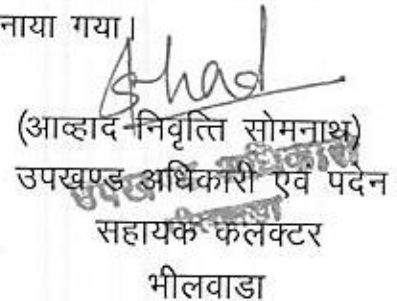 नाया गया।
(आव्हाद निवृत्ति सोमनाथ)
उपखण्ड अधिकारी एवं पदेन
सहायक कलक्टर
भीलवाडा